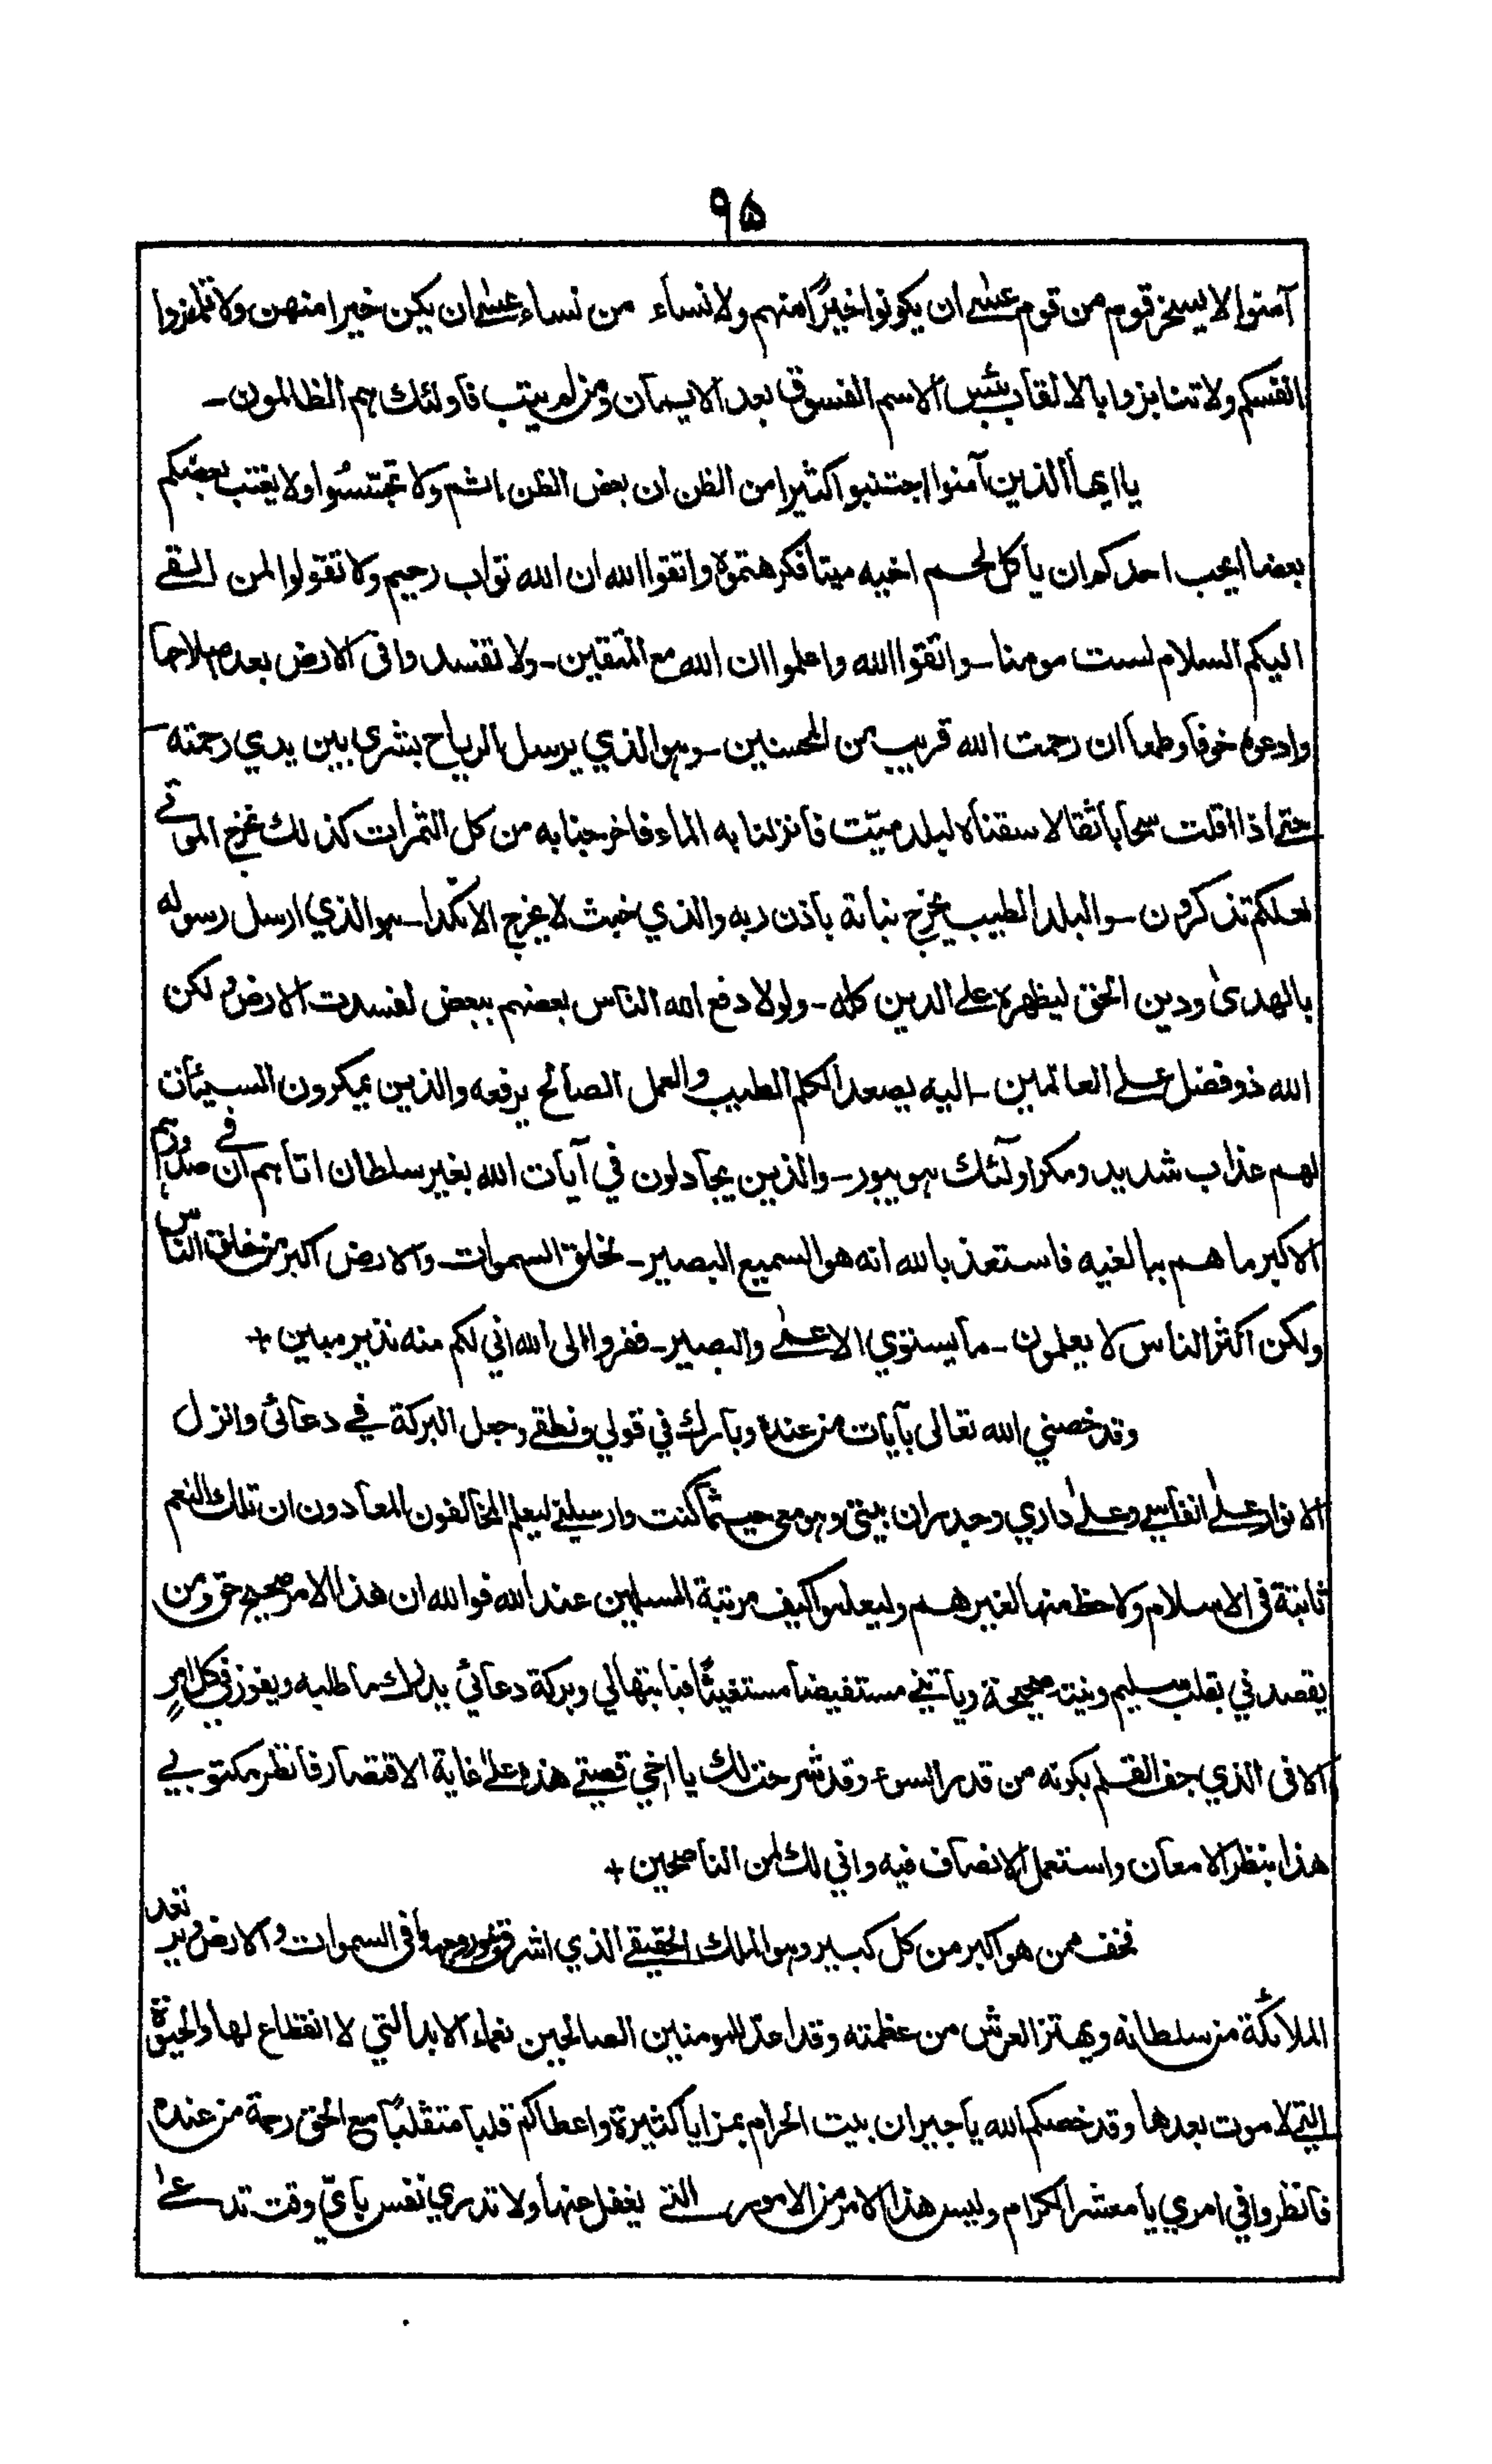 ۹۵
آمنوا لا يسخر قوم من قوم عسٰے ان يكونوا خيرًا منهم ولا نساء من نساء عسٰے ان يكن خيرا منهن ولا تلمزوا
انفسكم ولا تنابزوا بالالقاب بئس الاسم الفسوق بعد الايمان ومن لم يتب فاولئك هم الظالمون ـ
يا ايها الذين آمنوا اجتنبوا كثيرا من الظن ان بعض الظن اثم ولا تجسّسُوا ولا يغتب بعضكم
بعضا ايحب احدكم ان ياكل لحم اخيه ميتا فكرهتموه واتقوا الله ان الله تواب رحيم ولا تقولوا لمن القے
اليكم السلام لست مومنا ـ واتقوا الله واعلموا ان الله مع المتقين ـ ولا تفسدوا فى الارض بعد اصلاحها
وادعوه خوفا وطمعا ان رحمت الله قريب من المحسنين ـ وهو الذي يرسل الرياح بشرى بين يدي رحمته ـ
حتے اذا اقلت سحابا ثقالا سقناه لبلد ميّت فانزلنا به الماء فاخرجنا به من كل الثمرات كذلك نخرج الموتے
لعلكم تذكرون ـ والبلد الطيب يخرج نباته باذن ربه والذي خبث لا يخرج الا نكدا ـ هو الذي ارسل رسوله
بالهدىٰ ودين الحق ليظهره علے الدين كله ـ ولولا دفع الله الناس بعضهم ببعض لفسدت الارض و لكن
الله ذو فضل علے العالمين ـ اليه يصعد الكلم الطيب والعمل الصالح يرفعه والذين يمكرون السيئات
لهم عذاب شديد ومكر اولئك هو يبور ـ والذين يجادلون في آيات الله بغير سلطان اتاهم ان فے صدورهم
الا كبر ما هم ببالغيه فاستعذ بالله انه هو السميع البصير ـ لخلق السموات ـ والارض اكبر من خلق الناس
ولكن اكثر الناس لا يعلمون ـ ما يستوي الاعمٰے والبصير ـ ففروا الى الله اني لكم منه نذير مبين +
وقد خصني الله تعالى بآيات من عنده وبارك في قولي ونطقے وجعل البركة فے دعائى وانزل
الانوار علٰے انفاسے وعلٰے داري وجدران بيتى وهو معى حيثما كنت وارسلنے ليعلم المخالفون المعادون ان تلك النعم
ثابتة فى الاسلام ولا حظ منها لغيرهم وليعلموا كيف مرتبة المسلمين عند الله فوالله ان هذا الامر صحيح حق ومن
يقصدني بقلب سليم ونية صحيحة وياتينے مستفيضا مستغيثًا فبابتهالي وبركة دعائي يدرك ما طلبه ويفوز في كل امرٍ
الا فى الذي جف القلم بكونه من قدر السوء وقد شرحت لك يا اخي قصتے هذه علٰے غاية الاقتصار فانظر مكتوبے
هذا بنظر الامعان واستعمل الانصاف فيه واني لك لمن الناصحين +
نخف ممن هو اكبر من كل كبير وهو الملك الحقيقے الذي اشرق نور وجهه فى السموات والارض وترتعد
الملائكة من سلطانه ويهتز العرش من عظمته وقد اعدّ للمومنين الصالحين نعماء الابد التي لا انقطاع لها والحيٰوة
التے لا موت بعدها وقد خصكم الله يا جيران بيت الحرام بمزايا كثيرة واعطاكم قلبا متقلبًا مع الحق رحمة من عنده
فانظروا في امري يا معشر الكرام وليس هذا الامر من الامور التے يغفل عنها ولا تدري نفس بايّ وقت تدعےٰ